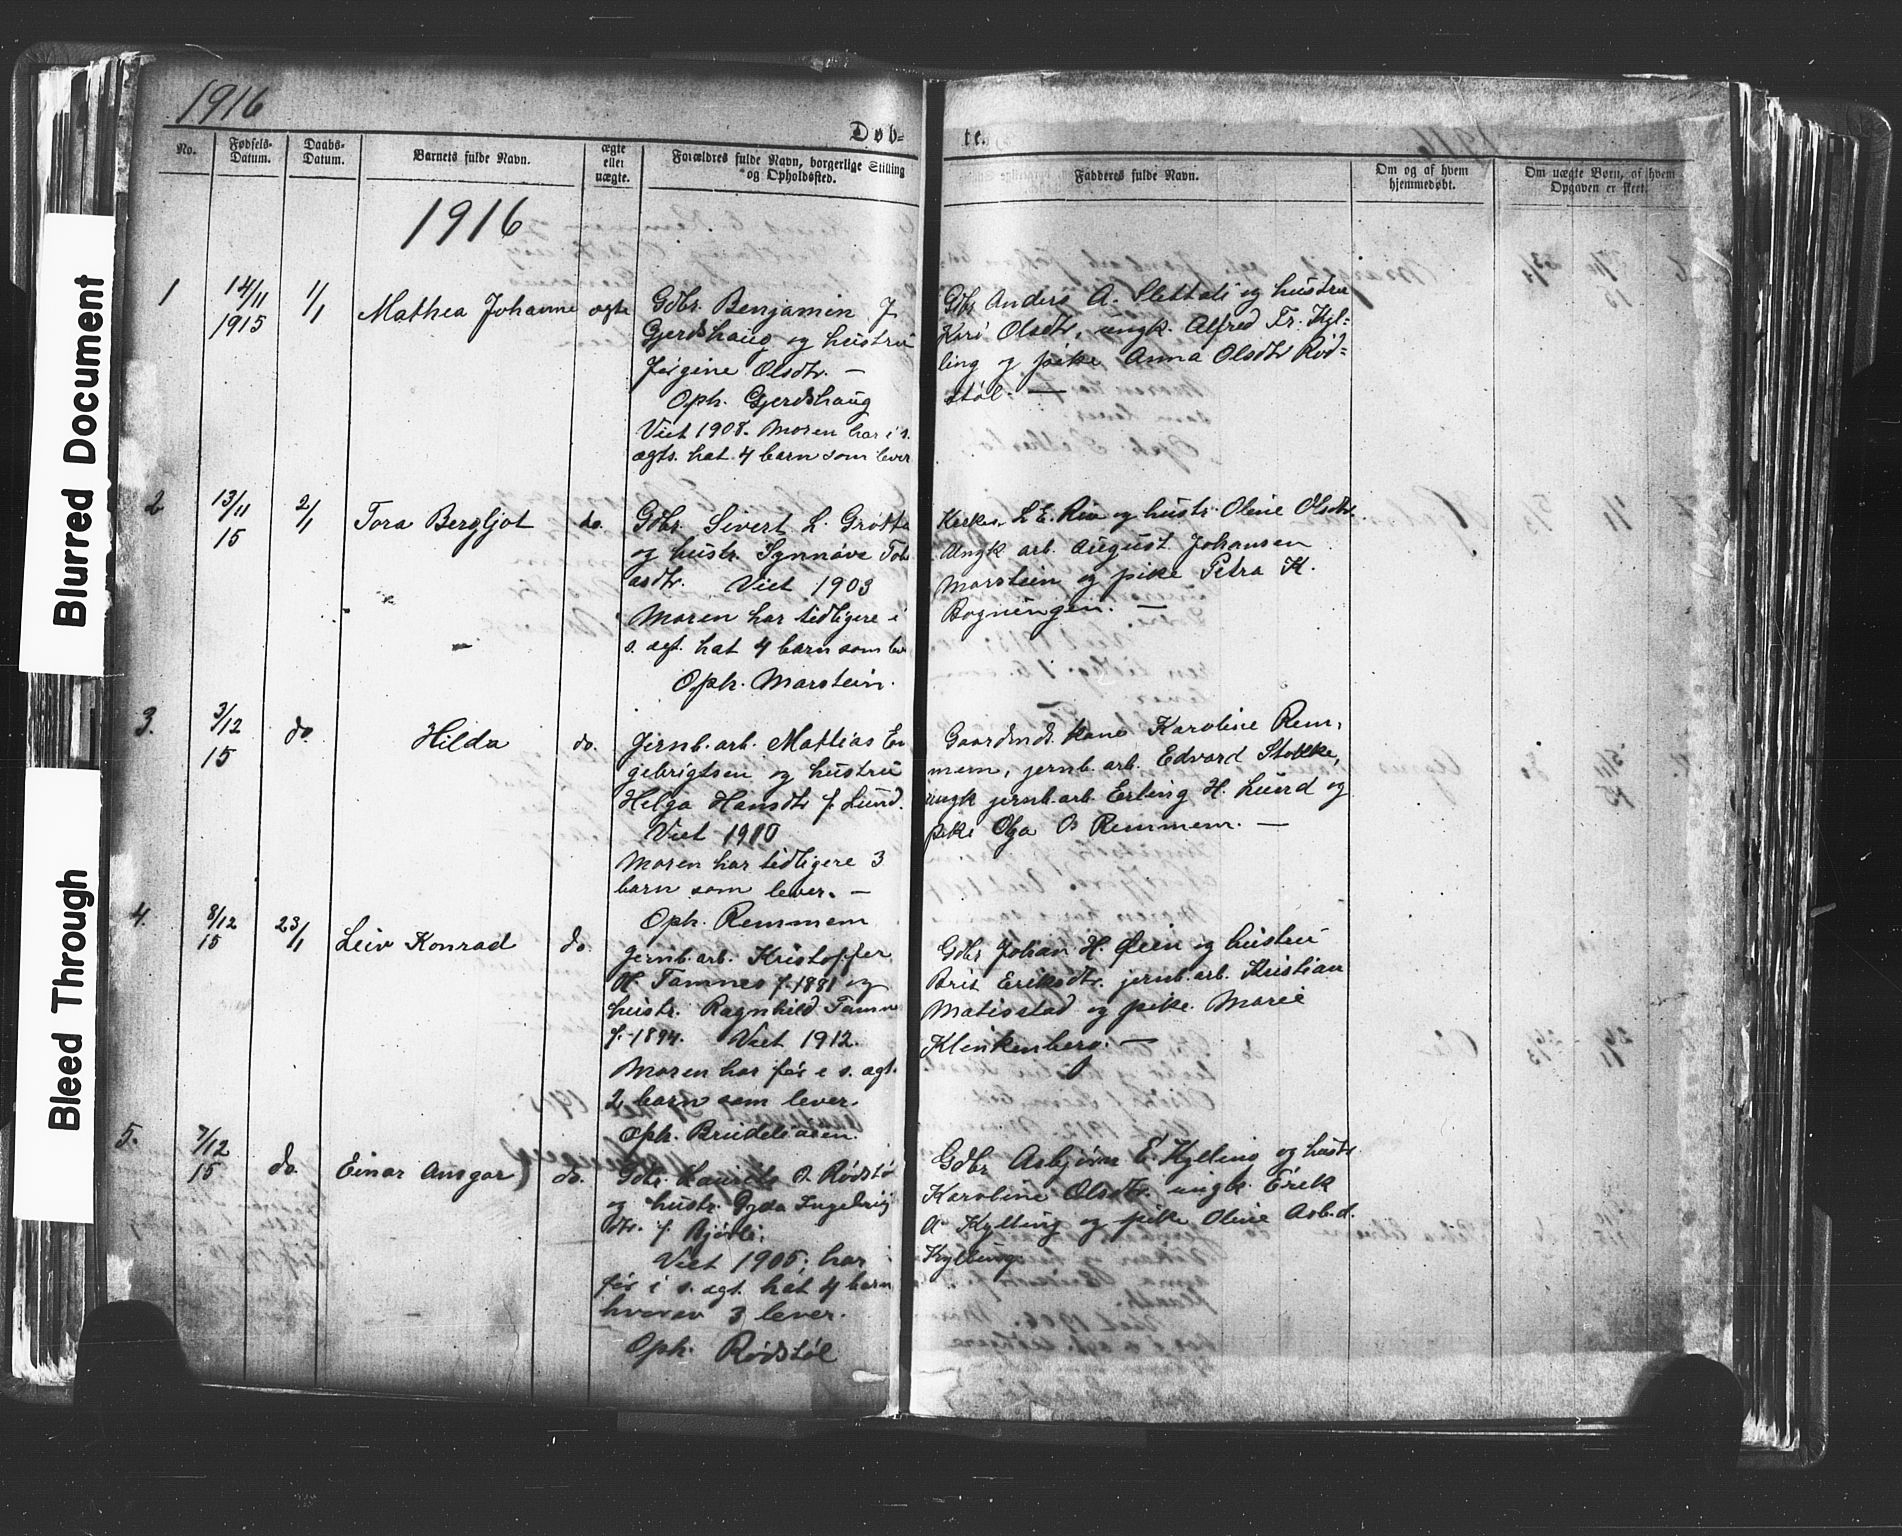 1916
Døb=
te.
1916
No.
Fødsels-
Datum.
Daabs-
Datum.
Barnets fulde Navn.
ægte
eller
uægte.
Forældres fulde Navn, borgerlige Stilling
og Opholdssted.
Fadderes fulde Navn.
Om og af hvem
hjemmedøbt.
Om uægte Børn, af hvem
Opgaven er skeet.
1916
1
14/11
1915
1/1
Mathea Johanne
ægte
Gdbr. Benjamin J
Gjerdshaug og hustru
Jørgine Olsdtr. —
Oph. Gjerdshaug
Viet 1908. Moren har i s.
ægts. hat 4 barn som lever
Gdbr Anders A. Slettali og hustru
Kari Olsdtr, ungk. Alfred Fr. Kyl=
ling og pike Anna Olsdtr Rød=
støl. —
2
13/11
15
2/1
Tora Bergljot
do.
Gdbr. Sivert L. Grøtte
og hustr. Synnøve Tob
asdtr. Viet 1903
Moren har tidligere i
s. ægt. hat 4 barn som lev
Oph. Marstein.
Kirkes. L E. Rise og hustr. Oline Olsdtr.
Ungk arb. August Johansen
Marstein og pike Petra K.
Bogningen. —
3.
3/12
15
do
Hilda
do.
Jernb.arb. Mattias En
gebrigtsen og hustru
Helga Hansdtr f. Lund.
Viet 1910
Moren har tidligere 3
barn som lever. —
Oph. Remmem
Gaardmd. kone Karoline Rem,
mem, jernb.arb. Edvard Stokke,
ungk jernb.arb. Erling H. Lund og
pike Olga O Remmem. —
4.
8/12
15
23/1
Leiv Konrad
do.
Jernb.arb. Kristoffer
H. Tamnes f. 1881 og
hustr. Ragnhild Tamn
f. 1894. Viet 1912.
Moren har før i s. ægt.
2 barn som lever.
Oph. Brudelsaen.
Gdbr Johan H. Øien og hustru
Brit Eriksdtr. jernb.arb. Kristian
Matisstad og pike Marie
Klinkenberg. —
5.
7/12
15
do
Einar Ansgar
do.
Gdbr. Laurits O. Rødstø
og hustr. Gyda Ingebrig
dtr. f. Bjørli.
Viet 1905; har
før i s. ægt. hat 4 barn
hvorav 3 lever.
Oph. Rødstøl
Gdbr Asbjørn E. Kylling og hustr.
Karoline Olsdtr. ungk. Erik
A Kylling og pike Oline Asb.d.
Kylling.
Blurred Document
Bleed Through